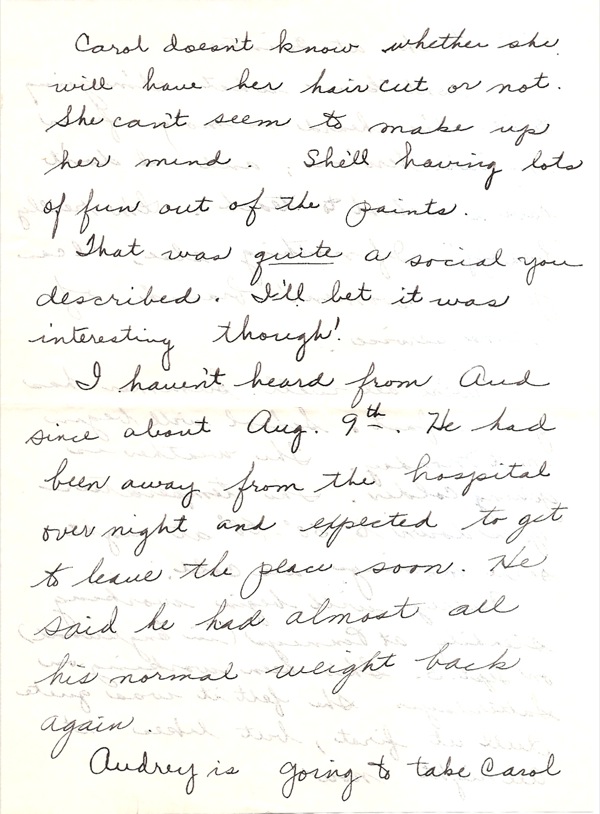 Carol doesn't know whether she
will have her hair cut or not.
She can't seem to make up
her mind. She'll having lots
of fun out of the paints.
That was quite a social you
described. I'll bet it was
interesting though!
I haven't heard from Aud
since about Aug. 9th. He had
been away from the hospital
over night and expected to get
to leave the place soon. He
said he had almost all
his normal weight back
again.
Audrey is going to take Carol